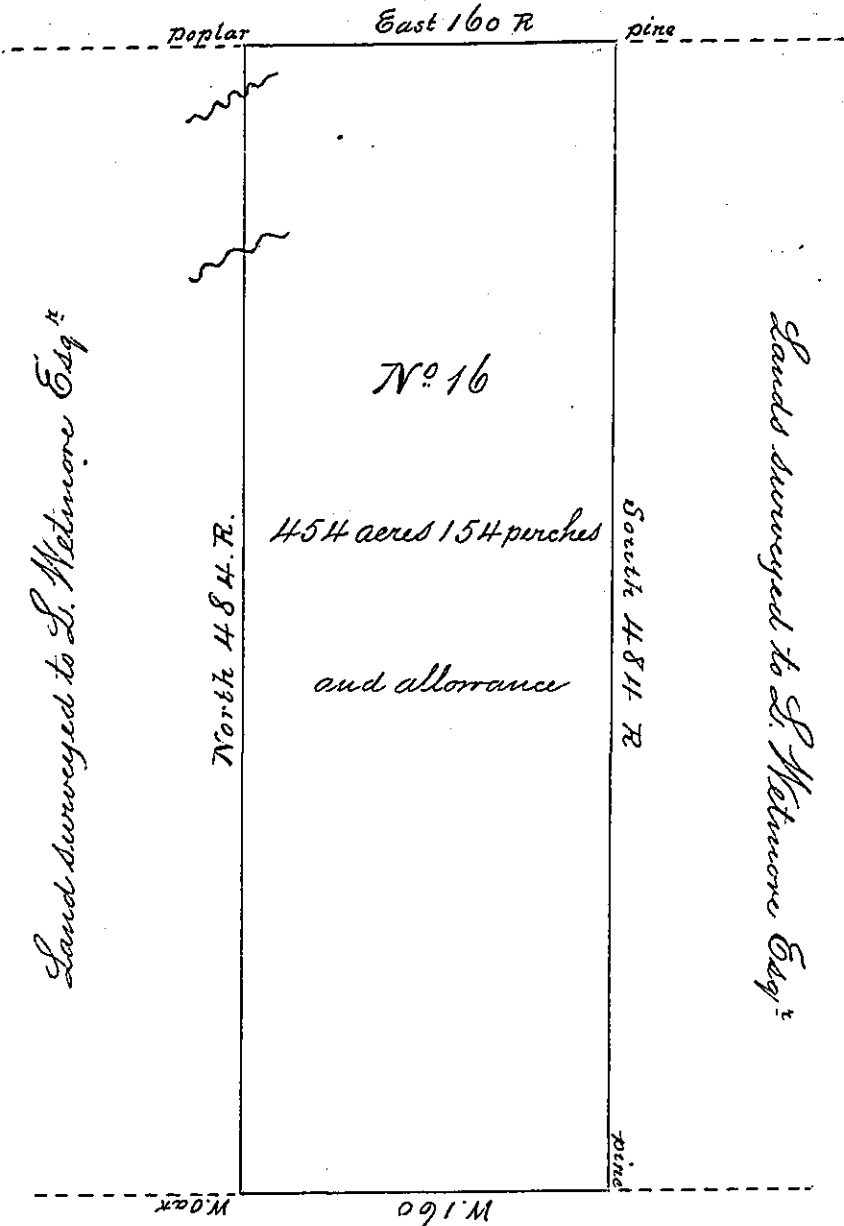 poplar East 160 R pine
Land surveyed to L. Wetmore Esqr
North 484.R.
No 16
454 acres 154 perches
and allowance
South 484 R
Lands surveyed to L. Wetmore Esqr
pine
W.oak W.160